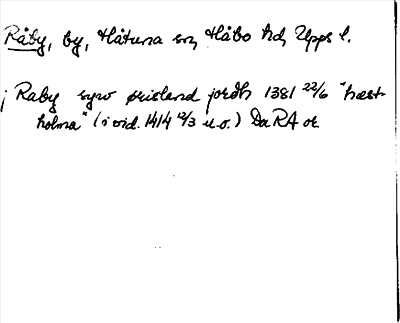 Råby, by, Håtuna sn, Håbo hd, Upps l.
j Raby syw ørisland jordh 1381 22/6 "hæst-
holma" (i vid. 1414 12/3 u.o.) Da RA or.